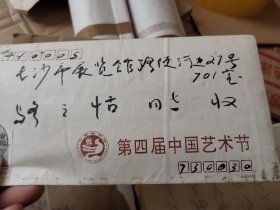 410005
长沙市展览馆路便河边27号
701室
骆之恬 同志 收
第四届中国艺术节
730030